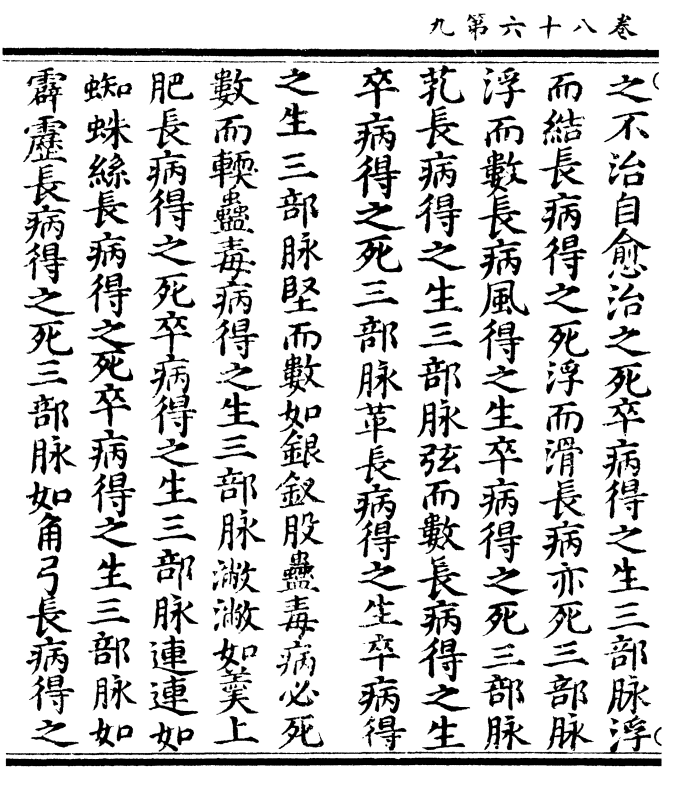 卷八十六第九
之不治自愈治之死卒病得之生三部脉浮
而結長病得之死浮而滑長病亦死三部脉
浮而數長病風得之生卒病得之死三部脉
芤長病得之生三部脉弦而數長病得之生
卒病得之死三部脉革長病得之生卒病得
之生三部脉堅而數如銀釵股蠱毒病必死
數而輭蠱毒病得之生三部脉潎潎如羹上
肥長病得之死卒病得之生三部脉連連如
蜘蛛絲長病得之死卒病得之生三部脉如
霹靂長病得之死三部脉如角弓長病得之